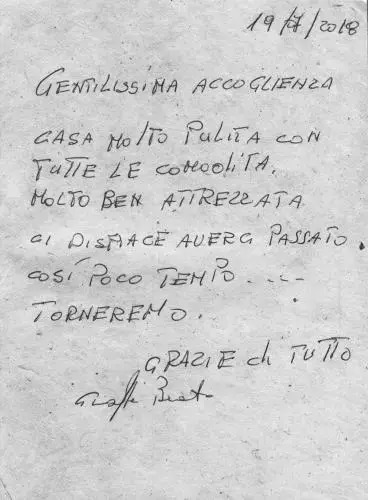 19/7/2018
GENTILISSIMA ACCOGLIENZA
CASA MOLTO PULITA CON
TUTTE LE COMODITA.
MOLTO BEN ATTREZZATA
CI DISPIACE AVERCI PASSATO
COSÍ POCO TEMPO.....
TORNEREMO.
GRAZIE di TUTTO